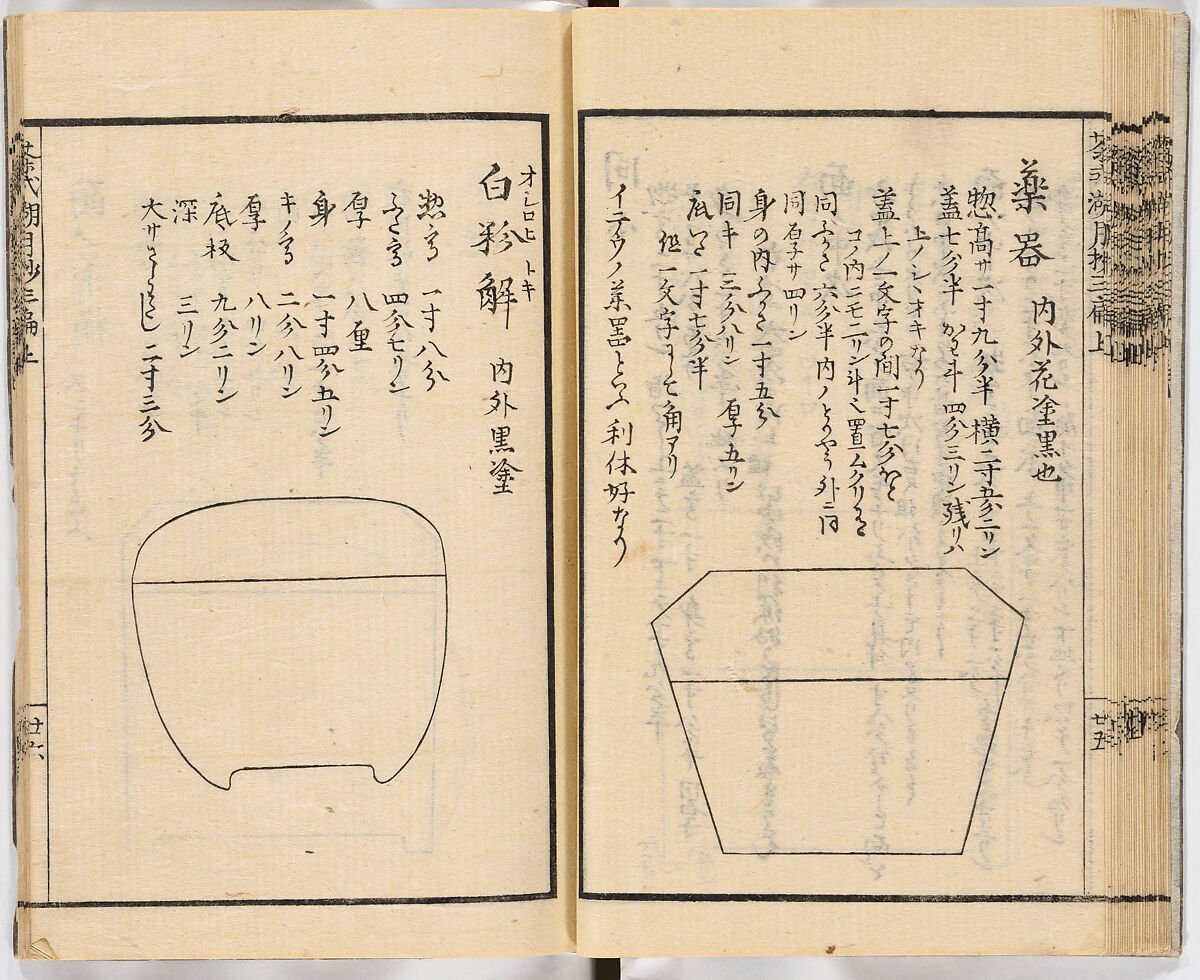 茶式湖月抄三編上
廿五
薬器 内外花塗黒也
惣高サ一寸九分半 横二寸五分二リン
蓋七分半 かゝり 四分三リン残リハ
上ノシヽオキなり
蓋上ノ一文字の間一寸七分ほと
コノ内ニモ二リン斗
同ふかさ 六分半 内ノとりやう外ニ同
同厚サ四リン
身の内ふかさ一寸五分
同キ 三分八リン 厚五リン
底いた一寸七分半
但一文字にて角アリ
イテウノ薬器といふ利休好なり
オシロヒ トキ
白粉解 内外黒塗
惣高 一寸八分
ふた高 四分七リン
厚 八厘
身 一寸四分五リン
キノ高 二分八リン
厚 八リン
底板 九分二リン
深 三リン
大サさしわたし二寸三分
茶式湖月抄三編上
廿六